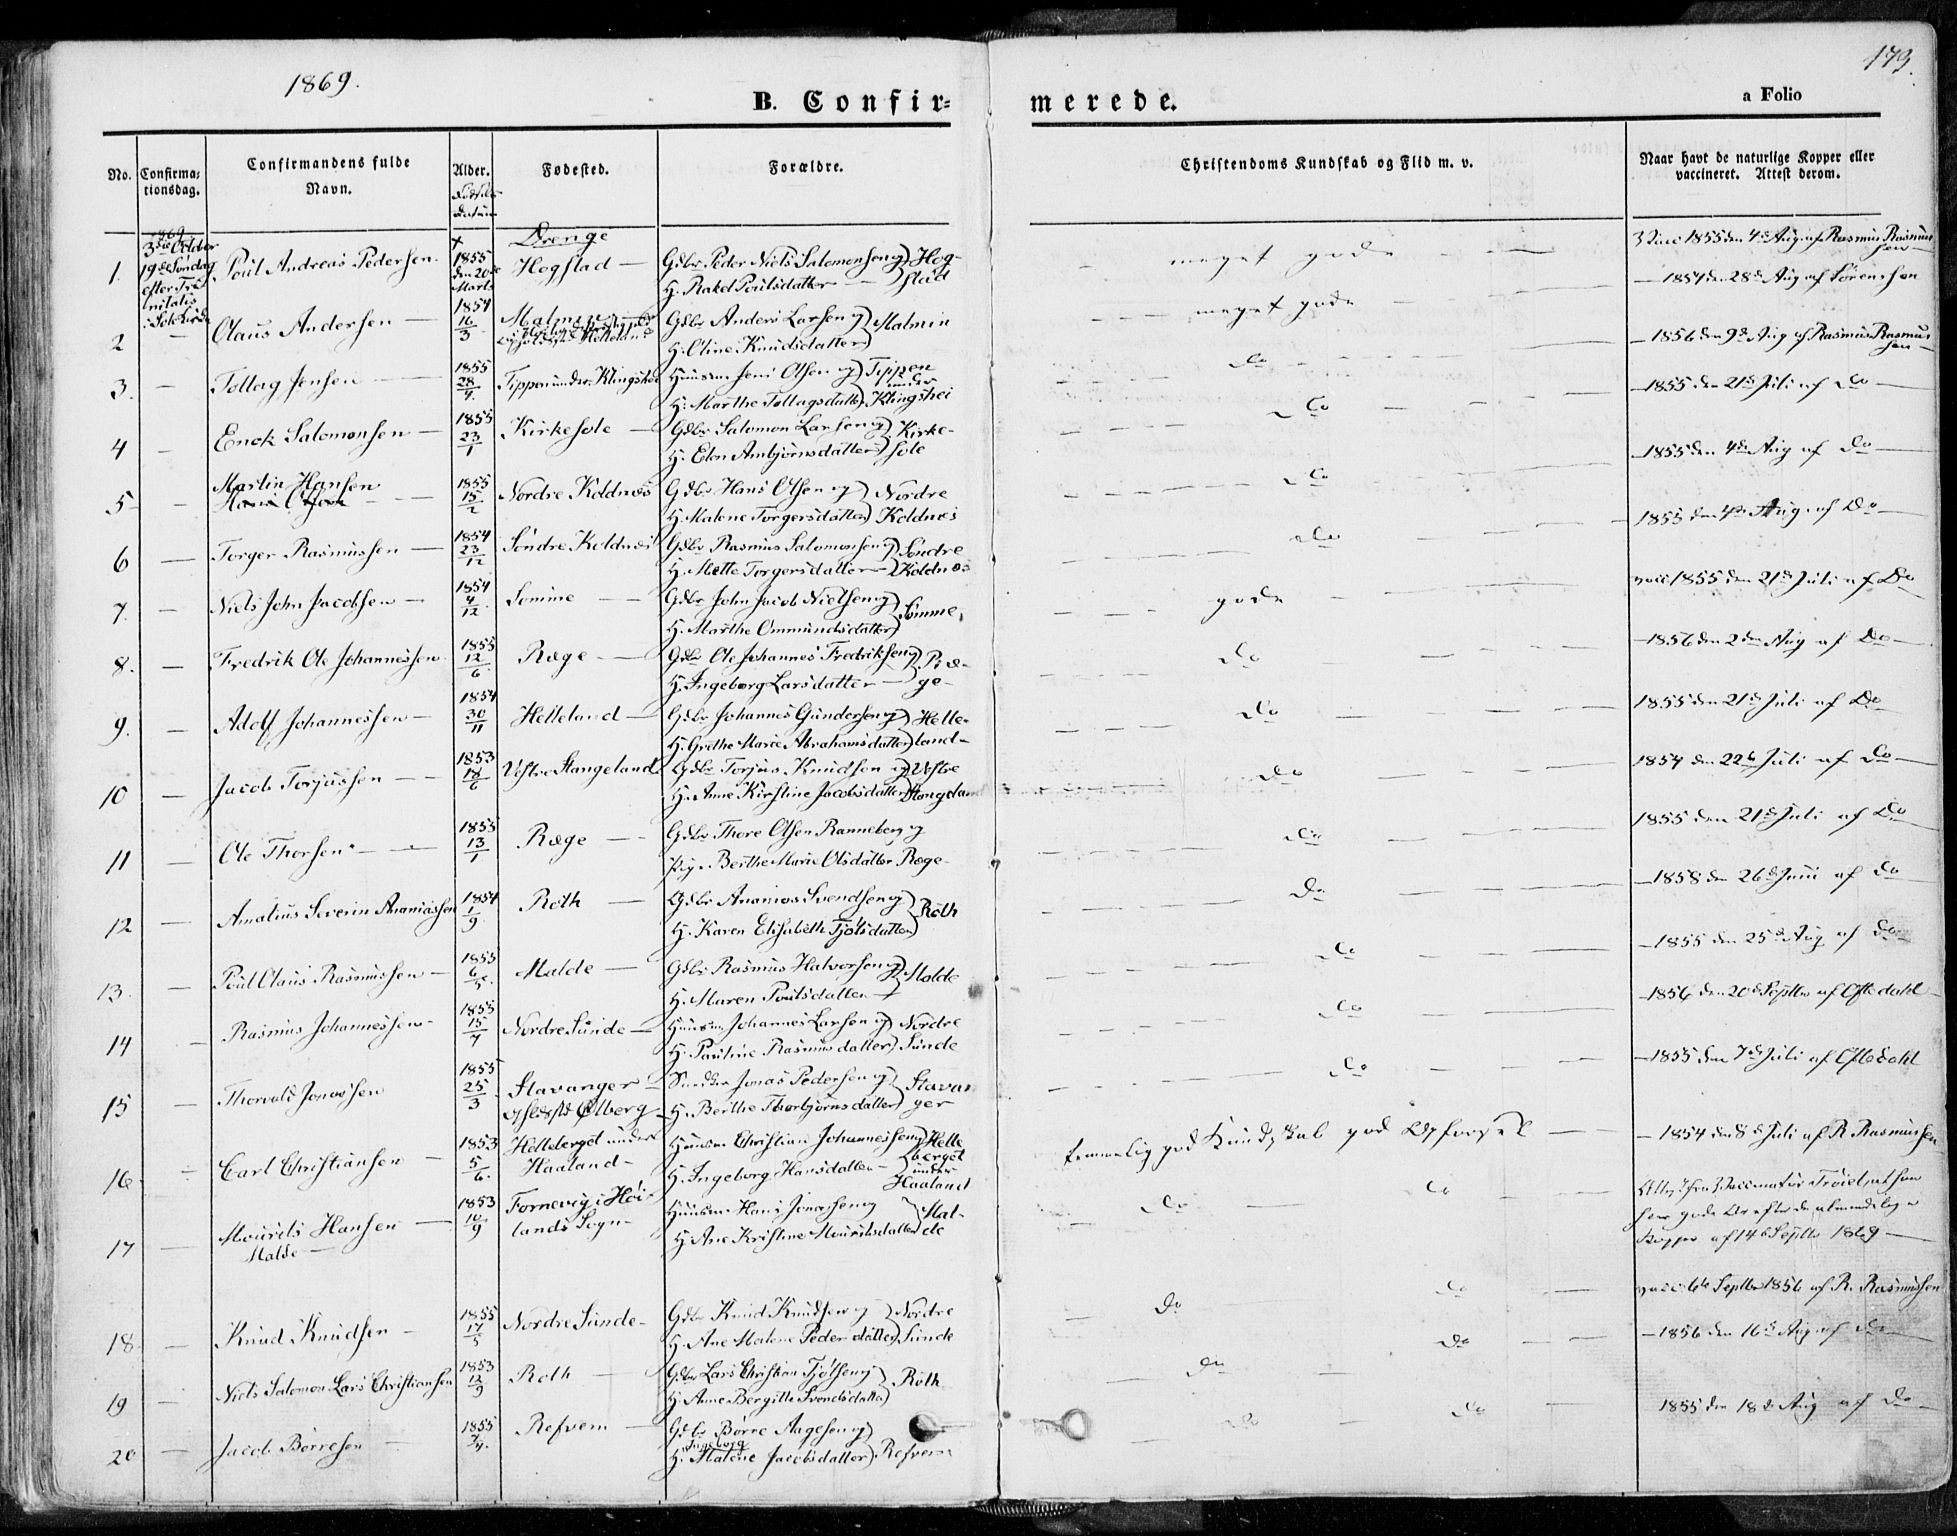 1869.
179.
B. Confir=
merede.
a Folio
No.
Confirma=
tionsdag.
Confirmandens fulde
Navn.
Alder.
Fødsels
datum
Fødested.
Forældre.
Christendoms Kundskab og Flid m. v.
Naar havt de naturlige Kopper eller
vaccineret. Attest derom.
1869
3die October
19de Søndag
efter Tri
nitatis
i Sole Kirke
Drenge
1. Poul Andreas Pedersen 1855 den 20de Marts Hogstad Gdbr Peder Niels Salomonsen og
H. Rakel Poulsdatter Hogstad
meget gode
Vacc 1855 den 4de Aug. af Rasmus Rasmussen
2 Olaus Andersen 1854 16/3 Malmin
Gdbr Anders Larsen og
H. Oline Knudsdatter Malmin
meget gode
1854 den 28de Aug af Sørenssen
3. Tollag Jensen 1855 28/4 Tippen under Klingshei Huusm Jens Olsen og
H. Marthe Tollagsdatter Tippen under Klingshei
Do
1856 den 9de Aug af Rasmus Rasmussen
4 Enok Salomonsen 1855 23/1 Kirkesole Gdbr Salomon Larsen og
H. Elen Ambjørnsdatter Kirkesole
Do
1855 den 21de Juli af Do
5 Martin Hansen 1855 15/2 Nordre Koldnæs Gdbr Hans Olsen og
H. Malene Torgersdatter Nordre Koldnæs
Do
1855 den 4de Aug af Do
6 Torger Rasmussen 1854 23/12 Søndre Koldnæs Gdbr Rasmus Salomonsen og
H. Mette Torgersdatter Søndre Koldnæs
Do
1855 den 4de Aug. af Do
7. Niels John Jacobsen 1854 4/12 Sømme Gdbr John Jacob Nielsen og
H. Marthe Ommundsdatter Sømme
gode
vacc 1855 den 21de Juli af Do
8. Fredrik Ole Johannessen 1855 12/6 Ræge Gdbr Ole Johannes Fredriksen og
H. Ingeborg Larsdatter Ræge
Do
1856 den 2den Aug af Do
9. Adolf Johannessen 1854 30/11 Helleland Gdbr Johannes Gundersen og
H. Grethe Marie Abrahamsdatter Helleland
Do
1855 den 21de Juli af Do
10 Jacob Torjussen 1853 18/6 Vestre Stangeland Gdbr Torjus Knudsen og
H. Anne Kirstine Jacobsdatter Vestre Stangeland
Do
1854 den 22de Juli af Do
11 Ole Thorsen 1855 13/1 Ræge Gdbr Thore Olsen Ranneberg og
Pig. Berthe Marie Olsdatter Ræge
Do
1855 den 21de Juli af Do
12 Amalius Severin Ananiassen 1854 1/9 Røth Gdbr Ananias Svendsen og
H. Karen Elisabeth Tjølsdatter Røth
Do
1858 den 26de Juni af Do
13. Poul Olaus Rasmussen 1855 6/5 Malde Gdbr Rasmus Halvorsen og
H. Maren Poulsdatter Malde
Do
1855 den 25de Aug af Do
14 Rasmus Johannessen 1855 15/7 Nordre Sunde Huusm Johannes Larsen og
H. Pauline Rasmusdatter Nordre Sunde
Do
1856 den 20de Septbr af Oftedahl
15 Thorvald Jonassen 1855 25/3 Stavanger
Opholdssted Ølberg Jonas Pedersen og
H. Berthe Thorbjørnsdatter Stavanger
Do
1855 den 7de Juli af Oftedahl
16 Carl Christiansen 1853 5/6 Helleberget under
Haaland Huusm Christian Johannessen og
H. Ingeborg Hansdatter Helleberget under Haaland
temmelig god Kundskab god Opførsel
1854 den 8de Juli af R. Rasmussen
17 Mourits Hansen
Malde 1853 10/9 Fornevig i Høi-
lands Sogn Huusm Hans Jonassen og
H. Ane Kristine Mouritsdatter Malde
Do Do
Attest fra Vaccinatør Trøiel, at han
har gode Ar efter de almindelige
Kopper af 14de Septbr 1869
18. Knud Knudsen 1855 17/5 Nordre Sunde Gdbr Knud Knudsen og
H. Ane Malene Pedersdatter Nordre Sunde
Do Do
vacc 6te Septbr 1856 af R. Rasmussen
19 Niels Salomon Lars Christiansen 1853 12/9 Roth Gdbr Lars Christian Tjølsen og
H. Anne Bergitte Svendsdatter Roth
Do Do
1856 den 16de Aug af Do
20 Jacob Børresen 1855 Refvem Gdbr Børre Aagesen og
Ingeborg
H. Malene Jacobsdatter Refvem
Do Do
1855 den 18de Aug af Do